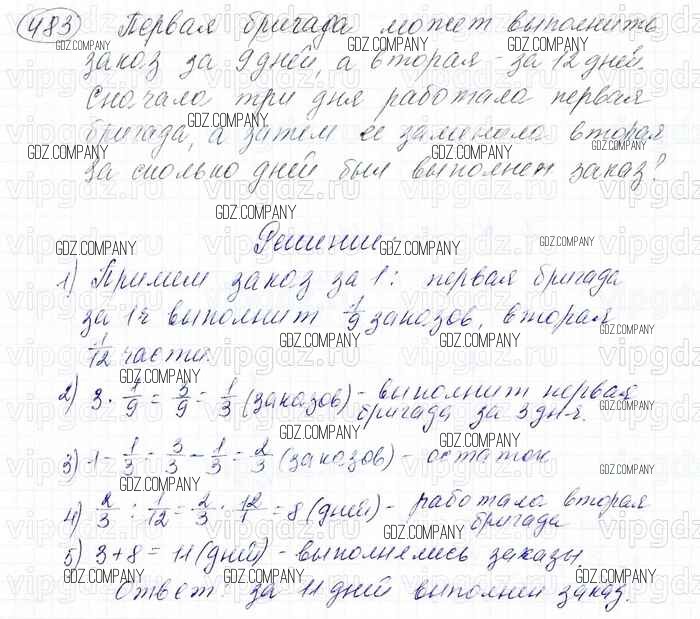 483 Первая бригада может выполнить
заказ за 9 дней, а вторая - за 12 дней.
Сначала три дня работала первая
бригада, а затем ее заменила вторая
За сколько дней был выполнен заказ?
Решение:
1) Примем заказ за 1: первая бригада
за 1ч выполнит 1/9 заказов, вторая
1/12 части.
2) 3 · 1/9 = 3/9 = 1/3 (заказов) - выполнит первая
бригада за 3 дня.
3) 1 - 1/3 = 3/3 - 1/3 = 2/3 (заказов) - остаток
4) 2/3 : 1/12 = 2/3 · 12/1 = 8 (дней) - работала вторая
бригада
5) 3 + 8 = 11 (дней) - выполнялись заказы
Ответ: за 11 дней выполнен заказ.
GDZ.COMPANY
vipgdz.ru